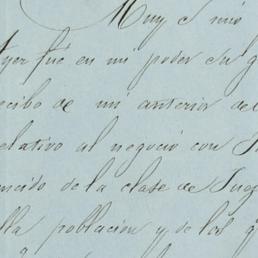 Muy S mio
Ayer fué en mi poder su g
ecibo de mi anterior del
elativo al negocio con
encido de la clase de
lla población y de los q